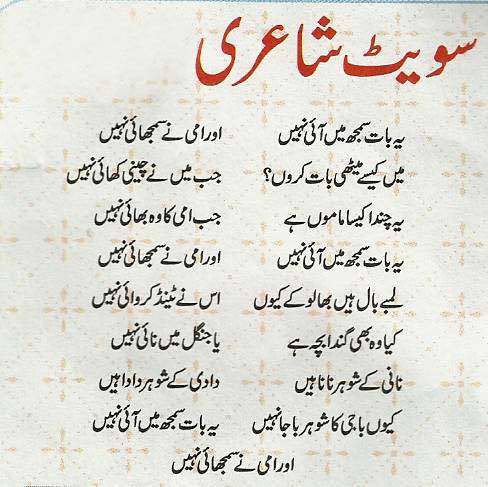 سویٹ شاعری
یہ بات سمجھ میں آئی نہیں اور امی نے سمجھائی نہیں
میں کیسے میٹھی بات کروں؟ جب میں نے چینی کھائی نہیں
یہ چندا کیسا ماموں ہے جب امی کا وہ بھائی نہیں
یہ بات سمجھ میں آئی نہیں اور امی نے سمجھائی نہیں
لمبے بال ہیں بھالو کے کیوں اس نے ٹینڈ کروائی نہیں
کیا وہ بھی گندا بچہ ہے یا جنگل میں نائی نہیں
نانی کے شوہر نانا ہیں دادی کے شوہر دادا ہیں
کیوں باجی کا شوہر باجا نہیں یہ بات سمجھ میں آئی نہیں
اور امی نے سمجھائی نہیں